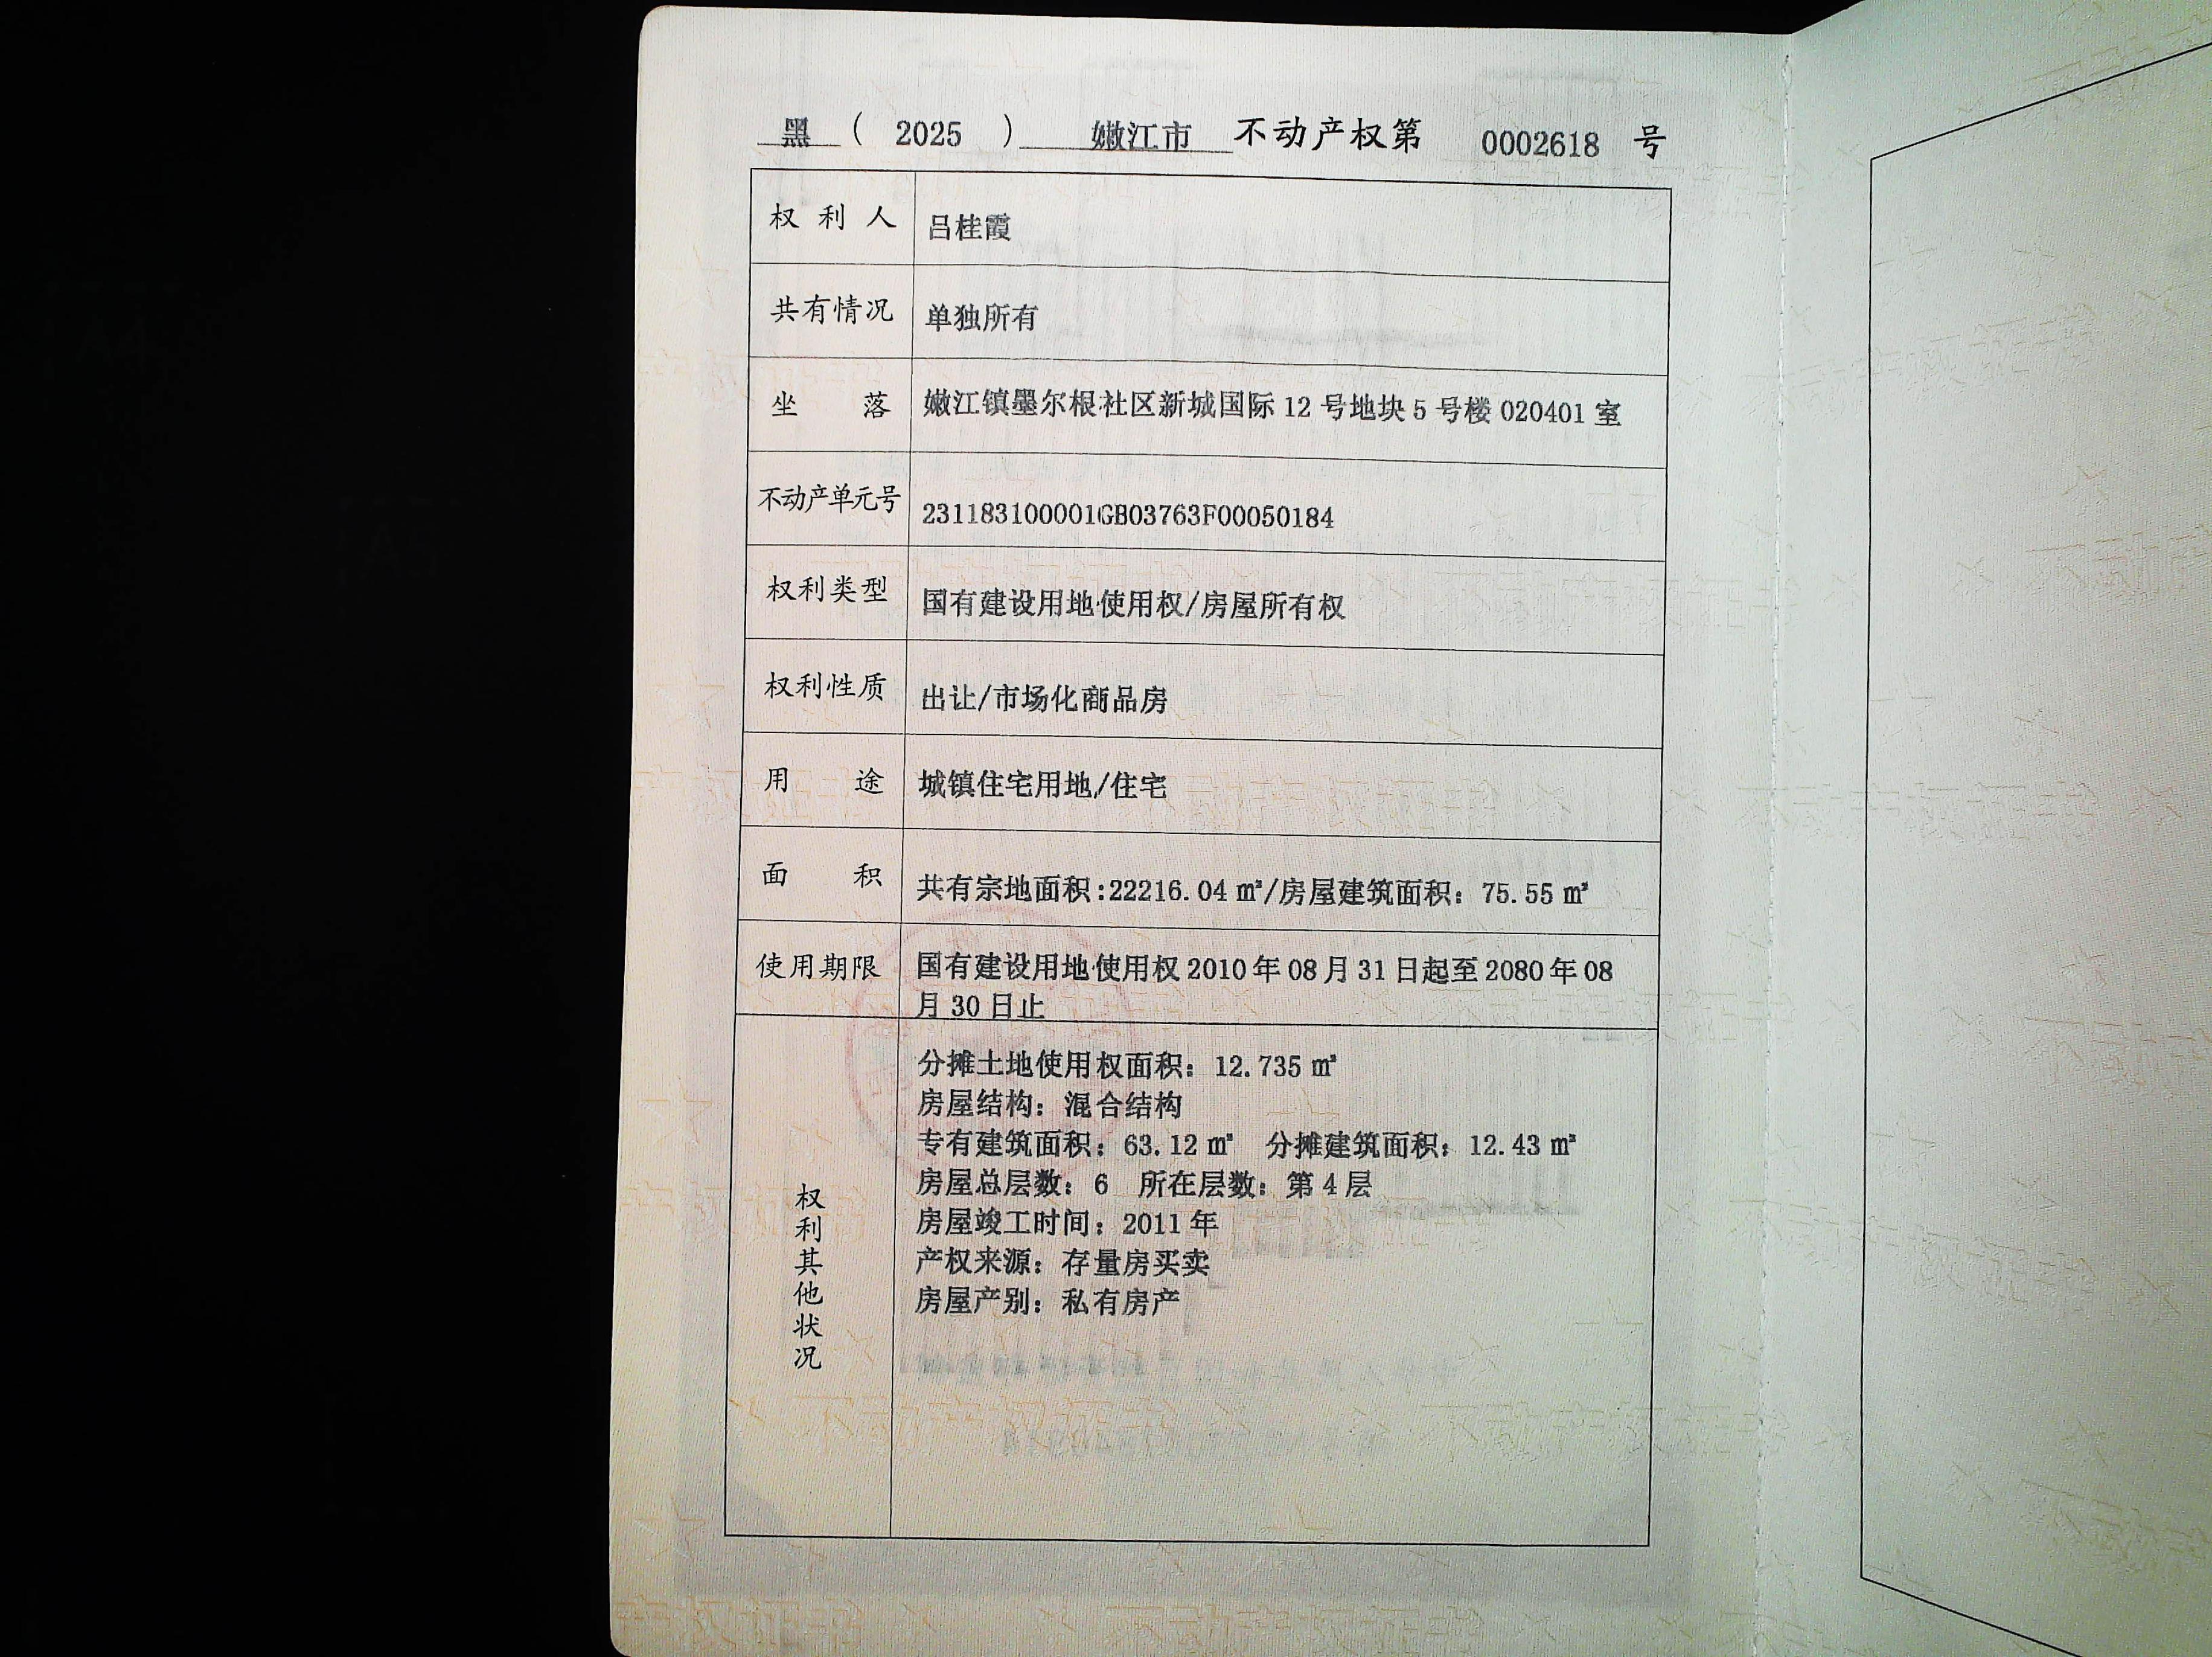 黑 ( 2025 ) 嫩江市 不动产权第 0002618 号
权利人 吕桂霞
共有情况 单独所有
坐落 嫩江镇墨尔根社区新城国际 12 号地块 5 号楼 020401 室
不动产单元号 231183100001GB03763F00050184
权利类型 国有建设用地使用权/房屋所有权
权利性质 出让/市场化商品房
用途 城镇住宅用地/住宅
面积 共有宗地面积:22216.04 ㎡/房屋建筑面积: 75.55 ㎡
使用期限 国有建设用地使用权 2010 年 08 月 31 日起至 2080 年 08
月 30 日止
权利其他状况
分摊土地使用权面积: 12.735 ㎡
房屋结构: 混合结构
专有建筑面积: 63.12 ㎡ 分摊建筑面积: 12.43 ㎡
房屋总层数: 6 所在层数: 第 4 层
房屋竣工时间: 2011 年
产权来源: 存量房买卖
房屋产别: 私有房产